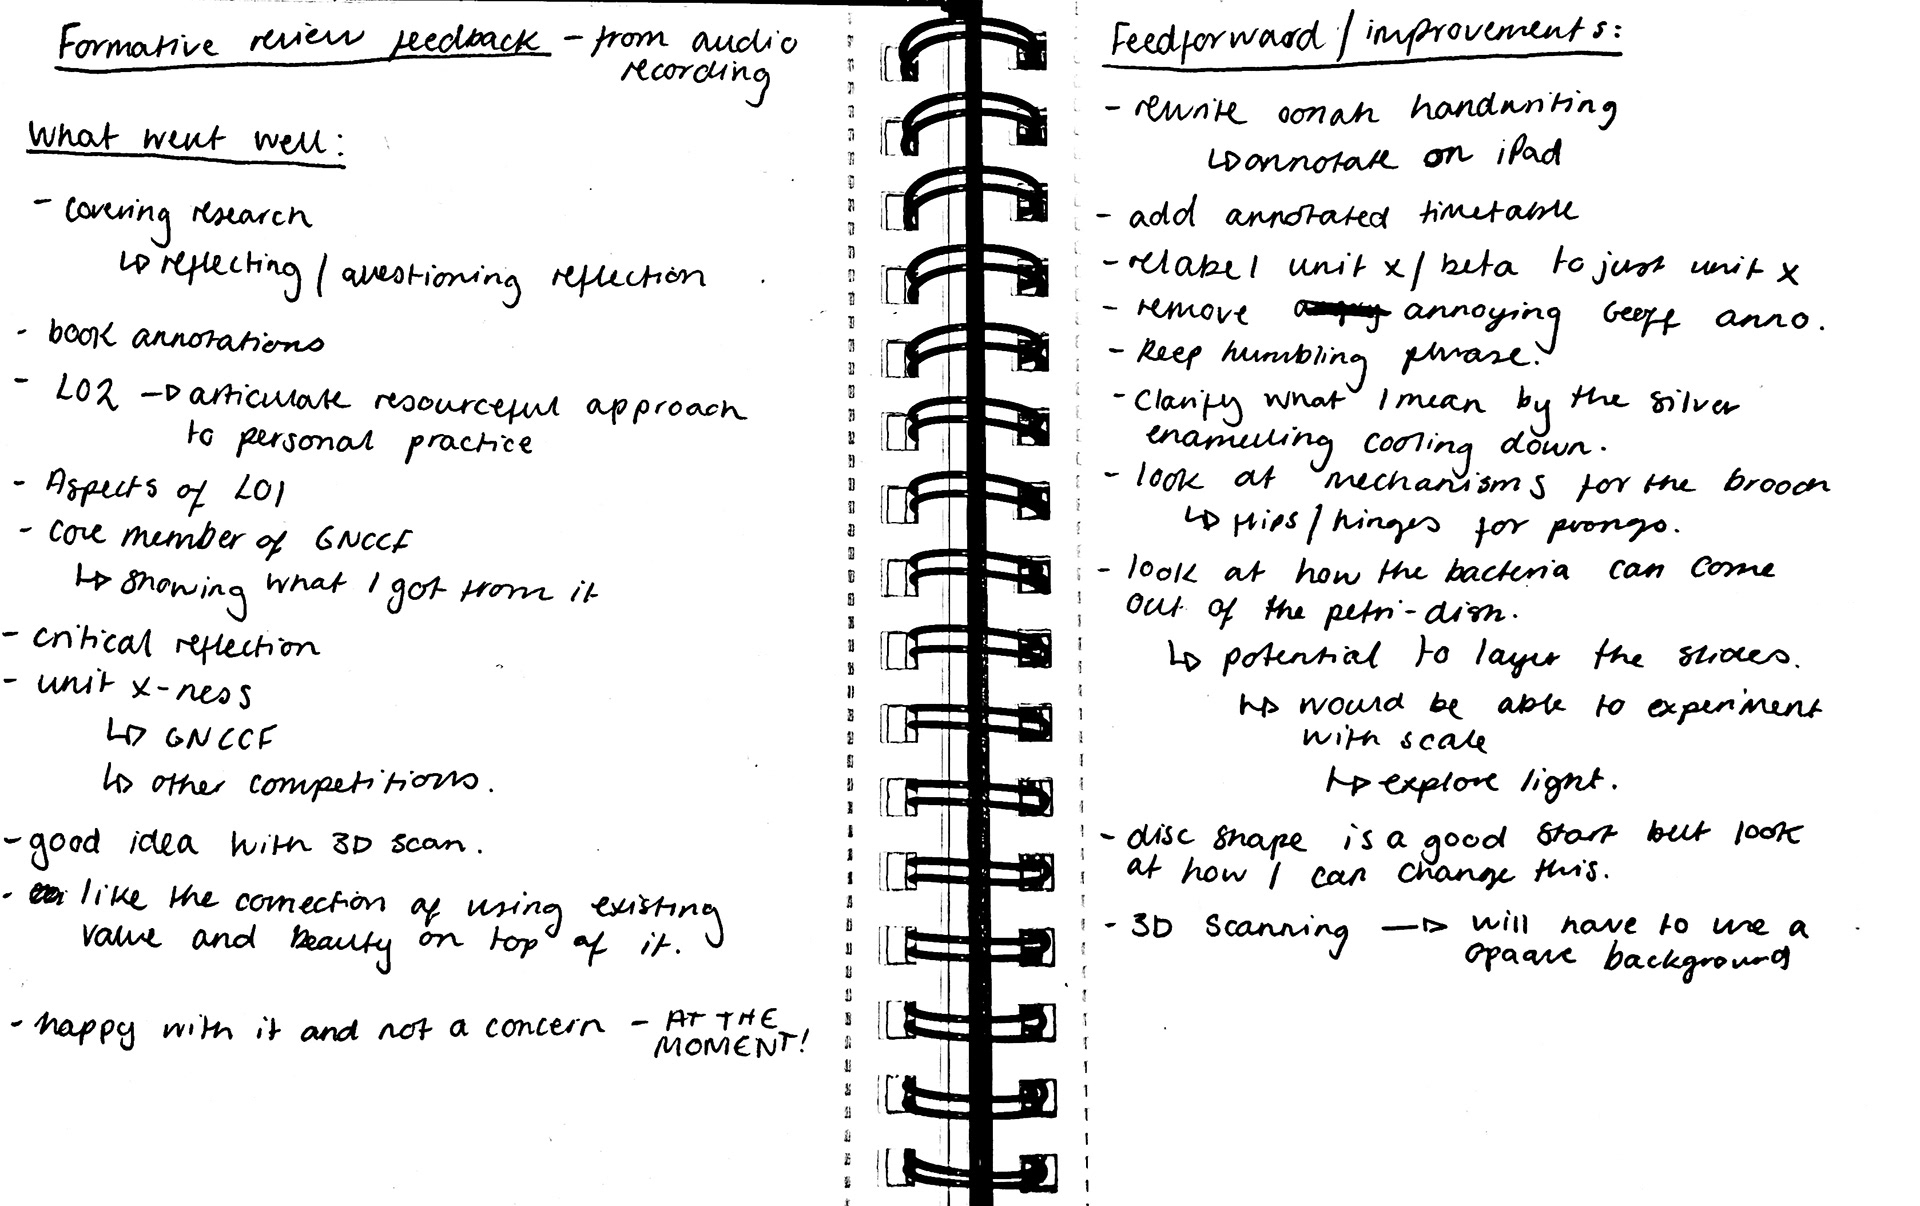 Formative review feedback - from audio
recording
What went well:
- covering research
↳ reflecting / questioning reflection
- book annotations
- LO2 → articulate resourceful approach
to personal practice
- Aspects of LO1
- core member of GNCCF
↳ showing what I got from it
- critical reflection
- unit x-ness
↳ GNCCF
↳ other competitions.
- good idea with 3D scan.
- like the connection of using existing
value and beauty on top of it.
- happy with it and not a concern - AT THE
MOMENT!
Feedforward / improvements:
- rewrite oonah handwriting
↳ annotate on iPad
- add annotated timetable
- relabel unit x / beta to just unit x
- remove annoying Geoff anno.
- keep humbling phrase.
- Clarify what I mean by the silver
enamelling cooling down.
- look at mechanisms for the brooch
↳ flips / hinges for prongs.
- look at how the bacteria can come
out of the petri-dish.
↳ potential to layer the slides.
↳ would be able to experiment
with scale
↳ explore light.
- disc shape is a good start but look
at how I can change this.
- 3D Scanning → will have to use a
opaque background